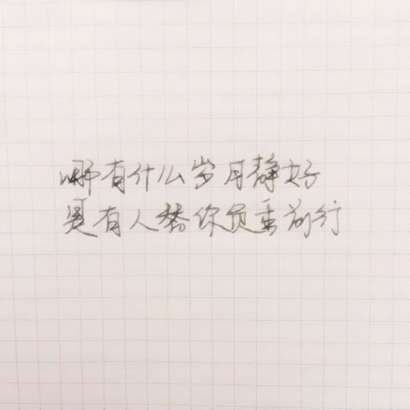 哪有什么岁月静好
是有人替你负重前行